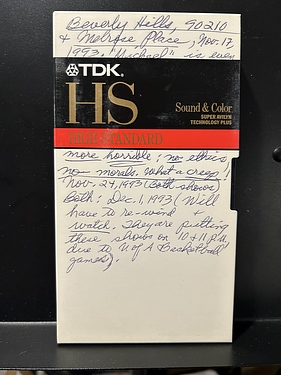 Beverly Hills, 90210
& Melrose Place, Nov. 17,
1993. "Michael" is even
TDK
HS
Sound & Color
SUPER AVILYN
TECHNOLOGY PLUS
HIGH STANDARD
more horrible; no ethics,
no morals. What a creep!
Nov. 24, 1993 (Both shows)
Both: Dec. 1, 1993 (Will
have to re-wind &
watch. They are putting
these shows on 10 & 11 P.M.
due to U of A Basketball
games).